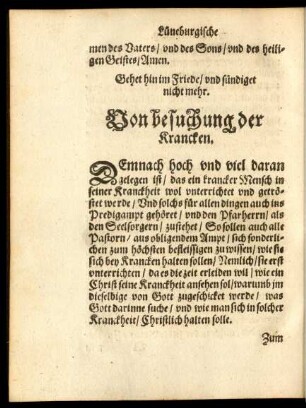 Lüneburgische
men des Vaters/ vnd des Sons/ vnd des heili-
gen Geistes/ Amen.
Gehet hin im Friede/ vnd sündiget
nicht mehr.
Von besuchung der
Krancken.
DEmnach hoch vnd viel daran
gelegen ist/ das ein krancker Mensch in
seiner Kranckheit wol vnterrichtet vnd getrö-
stet werde/ Vnd solchs für allen dingen auch ins
Predigampt gehöret/ vnd den Pfarherrn/ als
den Seelsorgern/ zustehet/ So sollen auch alle
Pastorn/ aus obligendem Ampt/ sich sonder-
lichen zum höchsten befleissigen zu wissen/ wie sie
sich bey Krancken halten sollen/ Nemlich/ sie erst
vnterrichten/ da es die zeit erleiden wil/ wie ein
Christ seine Kranckheit ansehen sol/ warumb jm
dieselbige von Gott zugeschicket werde/ was
Gott darinne suche/ vnd wie man sich in solcher
Kranckheit/ Christlich halten solle.
Zum